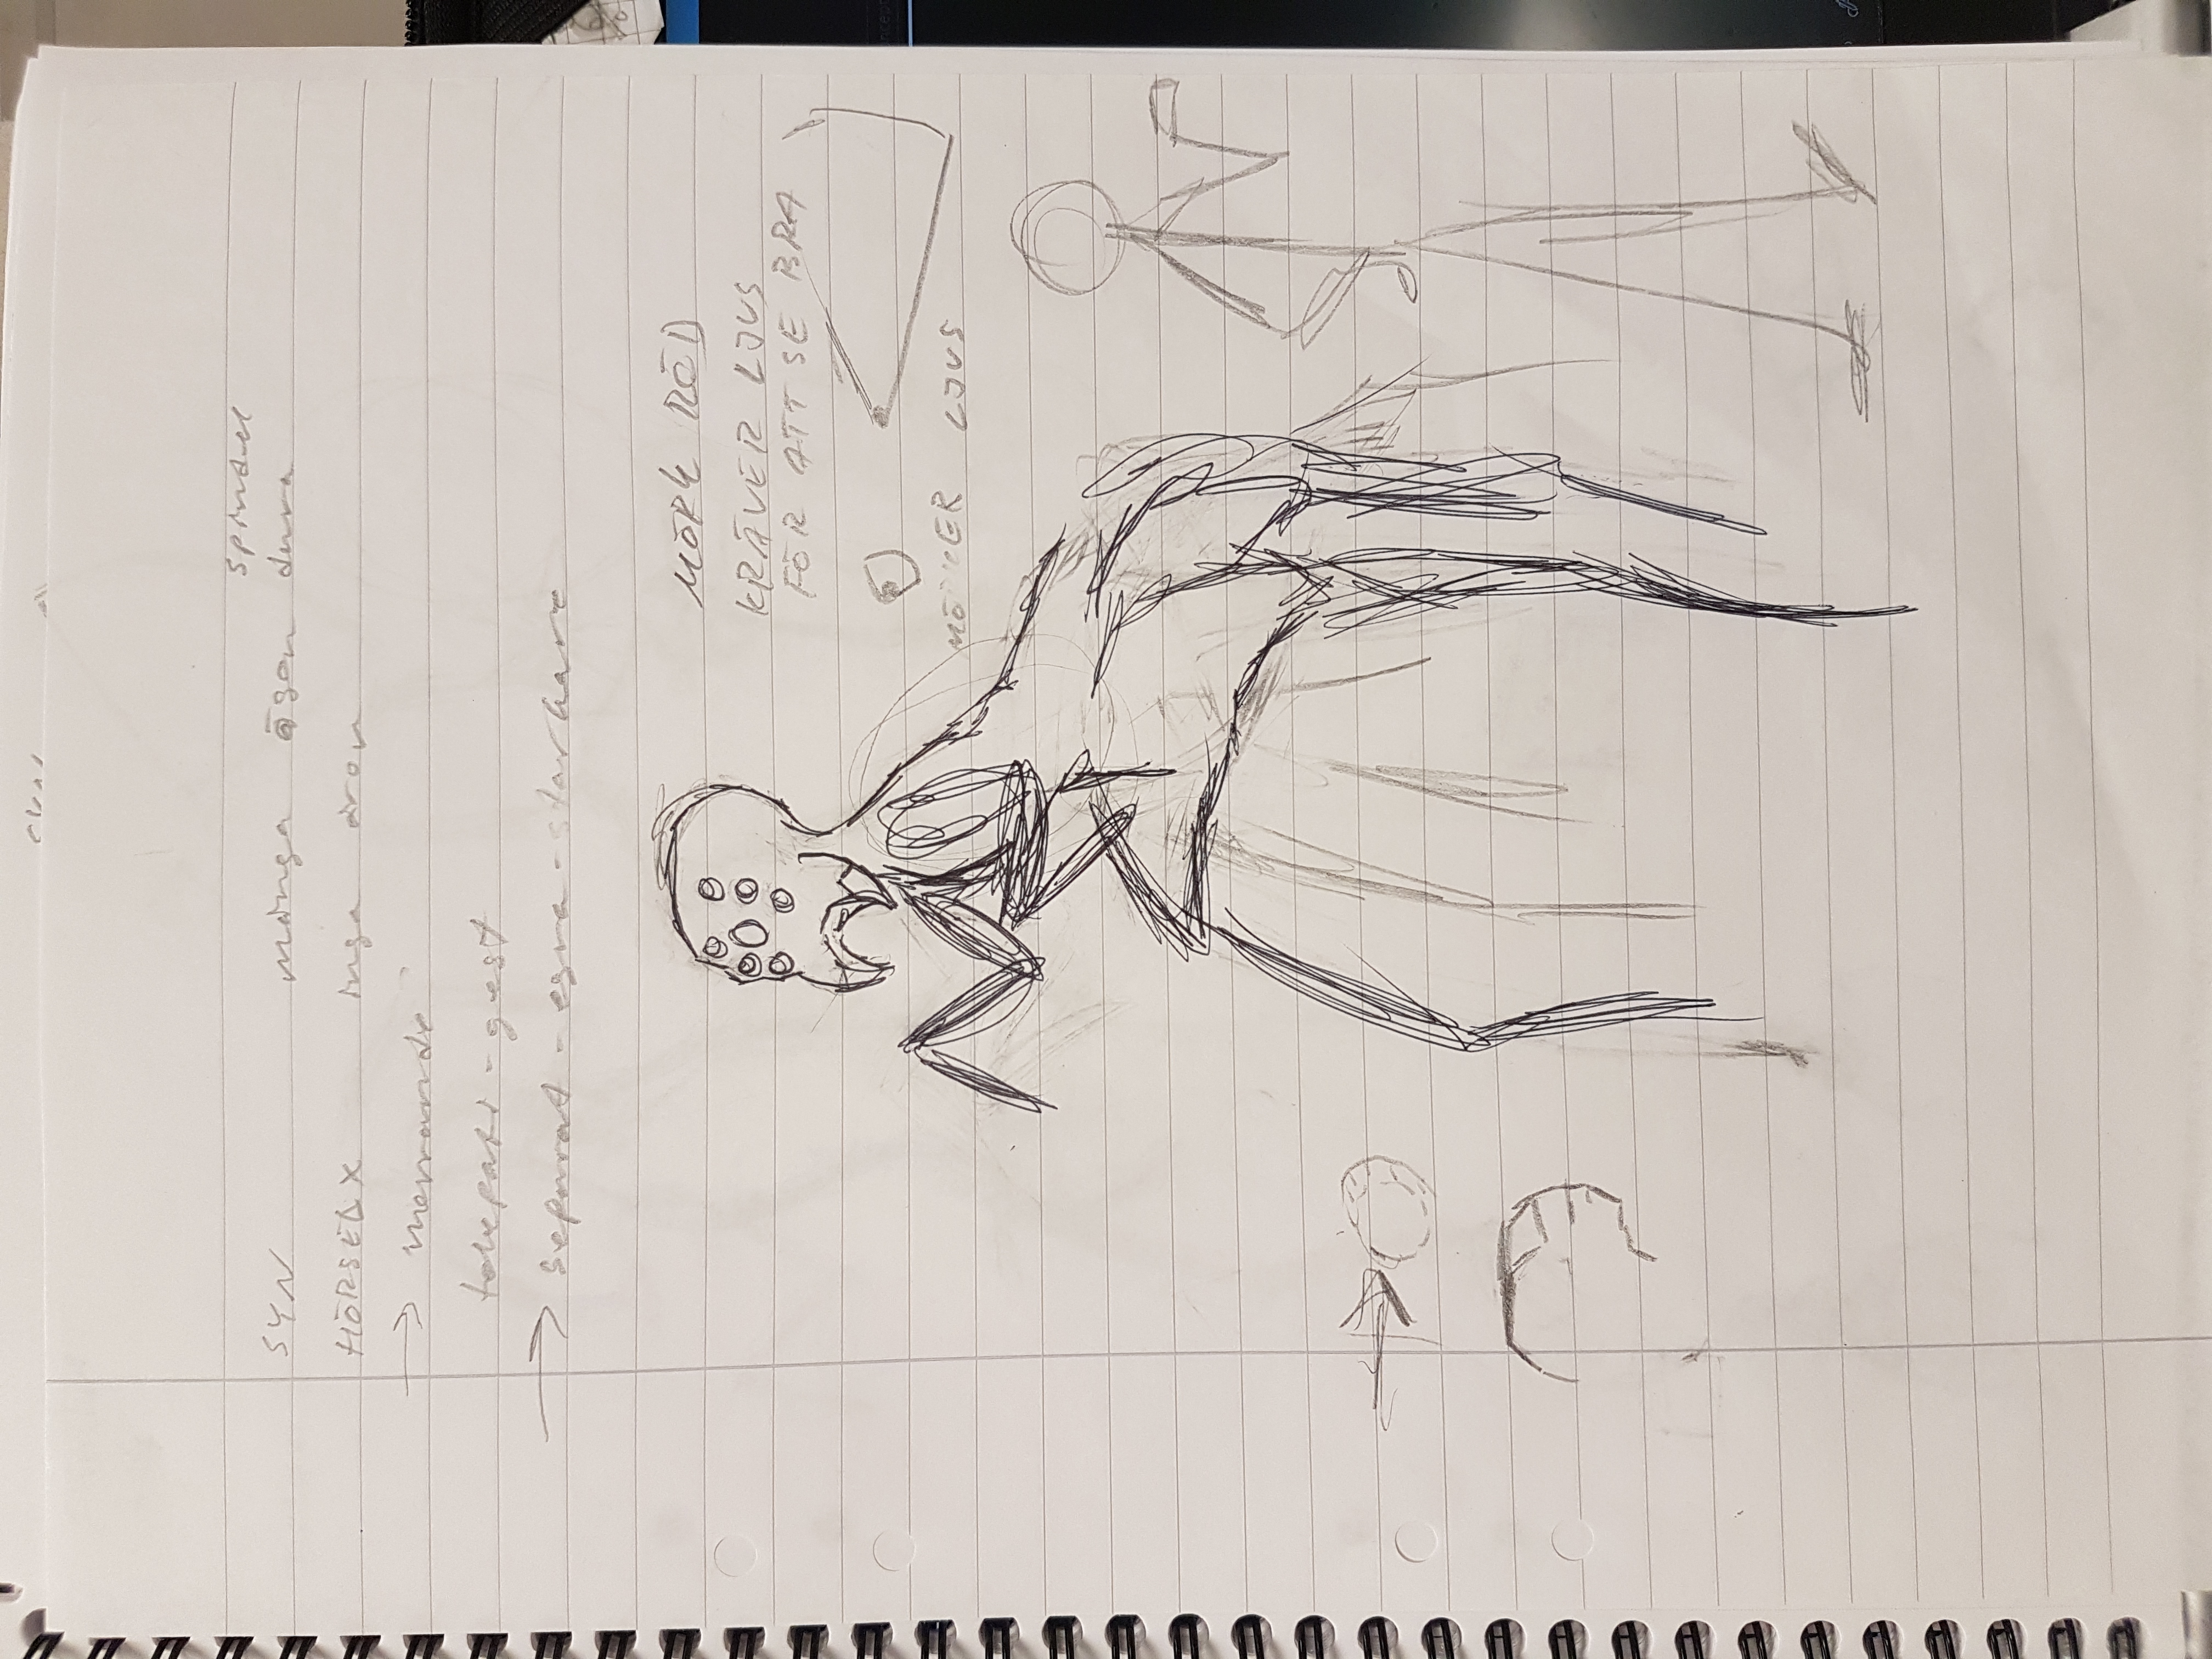 spindel
SYN många ögon
HÖRSEL X inga öron
telepati - gest
separat - egna - starkare
MÖRK RÖD
KRÄVER LJUS
FÖR ATT SE BRA
MÖRKER LJUS